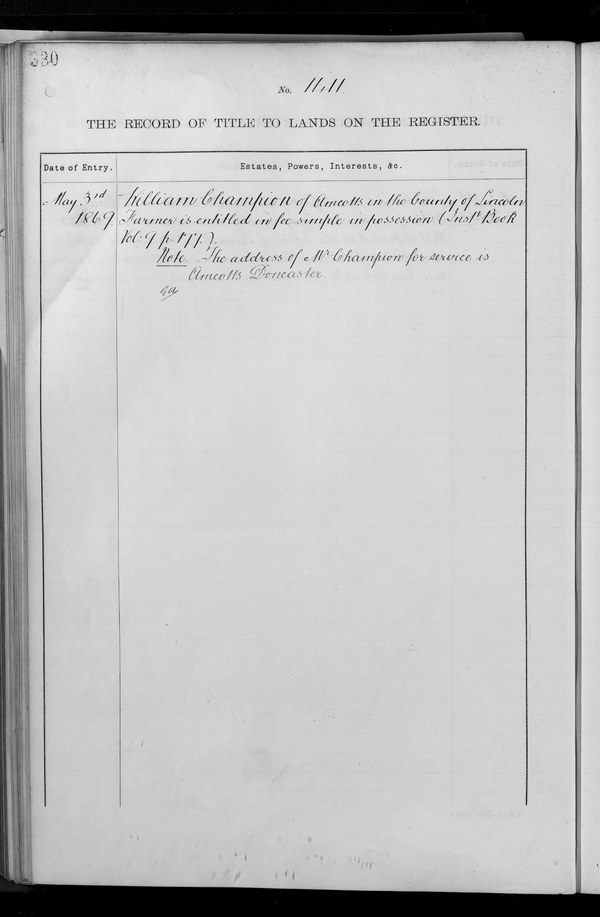 330
No. 1111
THE RECORD OF TITLE TO LANDS ON THE REGISTER.
Date of Entry.
Estates, Powers, Interests, &c.
May 3rd
1869
William Champion of Amcotts in the County of Lincoln
Farmer is entitled in fee simple in possession (Inst. Book
Vol. 9 p. 177).
Note. The address of Mr. Champion for service is
Amcotts Doncaster